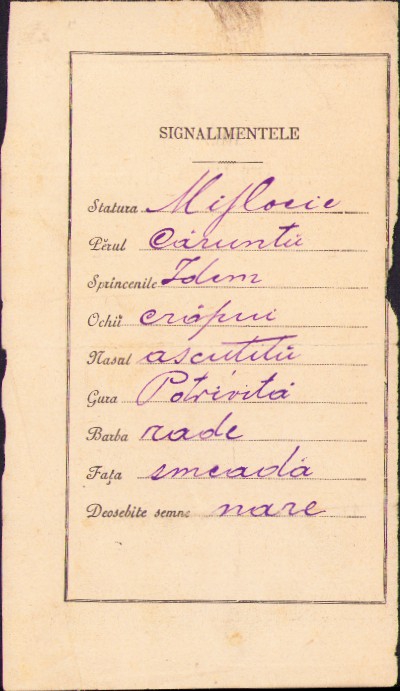 SIGNALIMENTELE
Statura Mijlocie
Pĕrul Căruntŭ
Sprincenile Idem
Ochiĭ crăpui
Nasul ascutitŭ
Gura Potrivită
Barba rade
Fața smeadă
Deosebite semne nare